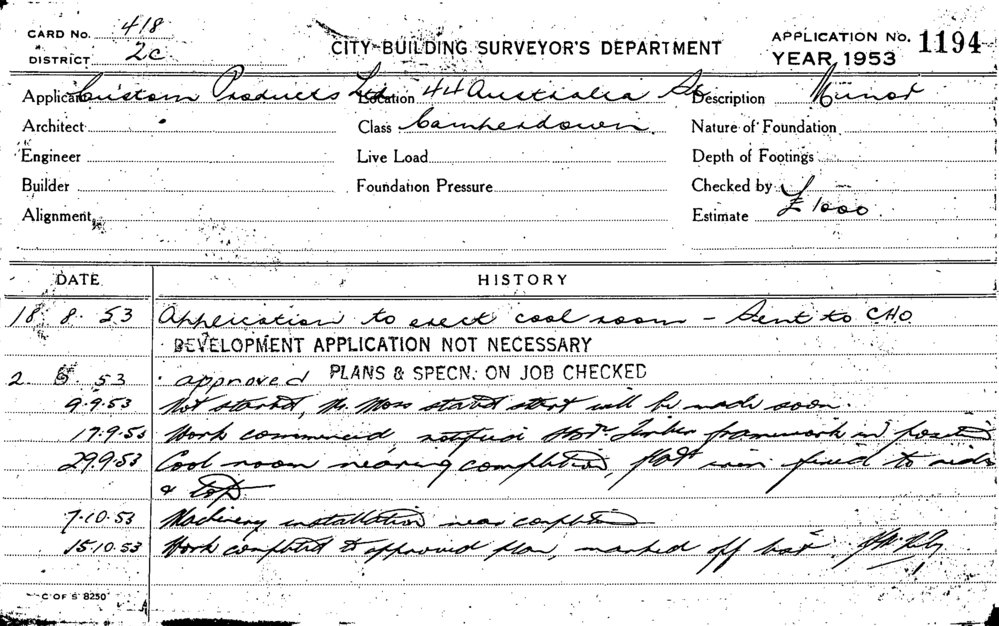 CARD No. 418
DISTRICT 2c
CITY BUILDING SURVEYOR'S DEPARTMENT
APPLICATION No. 1194
YEAR 1953
Applicant Custom Products Ltd Location 44 Australia St Description Minor
Architect Class Camperdown Nature of Foundation
Engineer Live Load Depth of Footings
Builder Foundation Pressure Checked by
Alignment Estimate £1000
DATE HISTORY
18 8. 53 Application to erect cool room - Sent to CHO
DEVELOPMENT APPLICATION NOT NECESSARY
2. 53 approved PLANS & SPECN. ON JOB CHECKED
9.9.53 Not started, Mr. Moss stated start will be made soon.
17.9.53 Work commenced, notified timber framework in position
29.9.53 Cool room nearing completion, flat iron fixed to sides
& top
7.10.53 Machinery installation near completion
15.10.53 Work completed to approved plan, marked off
C OF S 8250